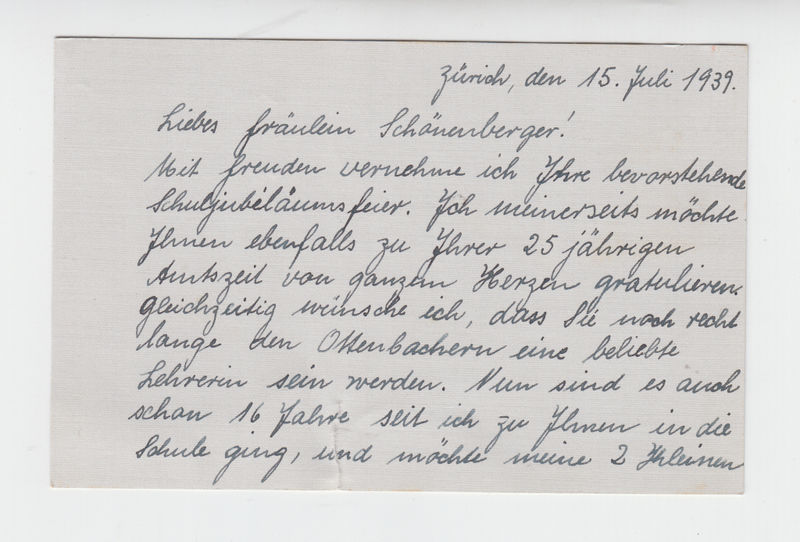 Zürich, den 15. Juli 1939.
Liebes Fräulein Schönenberger!
Mit Freuden vernehme ich Ihre bevorstehende
Schuljubiläumsfeier. Ich meinerseits möchte
Ihnen ebenfalls zu Ihrer 25 jährigen
Amtszeit von ganzem Herzen gratulieren.
Gleichzeitig wünsche ich, dass Sie noch recht
lange den Ottenbachern eine beliebte
Lehrerin sein werden. Nun sind es auch
schon 16 Jahre seit ich zu Ihnen in die
Schule ging, und möchte meine 2 Kleinen